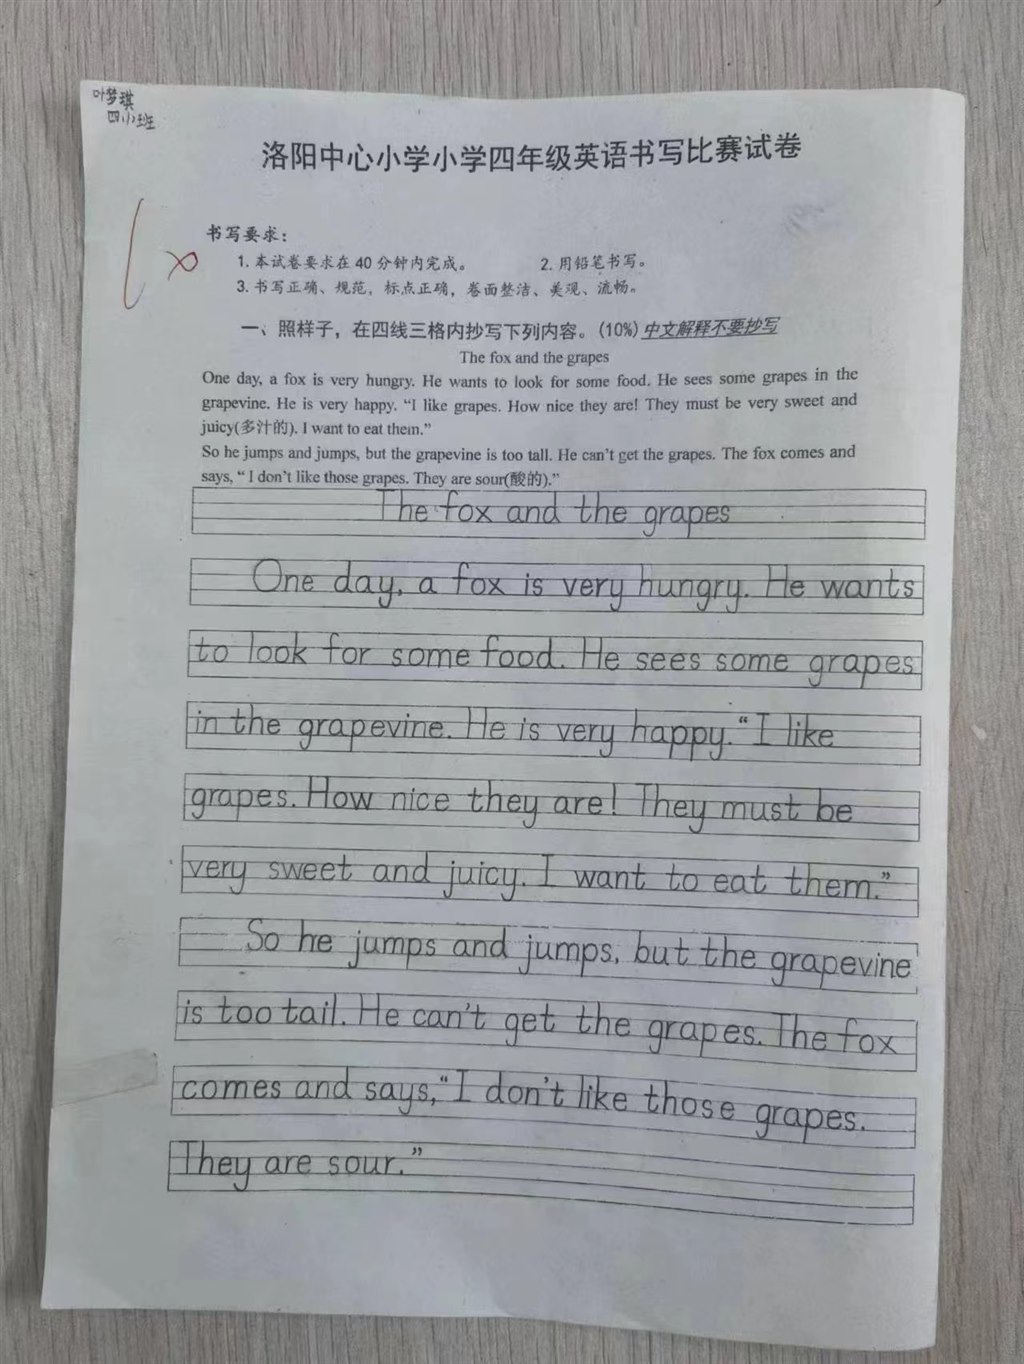 叶梦琪
四(1)班
洛阳中心小学小学四年级英语书写比赛试卷
书写要求：
1. 本试卷要求在 40 分钟内完成。 2. 用铅笔书写。
3. 书写正确、规范，标点正确，卷面整洁、美观、流畅。
一、照样子，在四线三格内抄写下列内容。(10%) 中文解释不要抄写
The fox and the grapes
One day, a fox is very hungry. He wants to look for some food. He sees some grapes in the
grapevine. He is very happy. “I like grapes. How nice they are! They must be very sweet and
juicy(多汁的). I want to eat them.”
So he jumps and jumps, but the grapevine is too tall. He can’t get the grapes. The fox comes and
says, “ I don’t like those grapes. They are sour(酸的).”
The fox and the grapes
One day, a fox is very hungry. He wants
to look for some food. He sees some grapes
in the grapevine. He is very happy. “I like
grapes. How nice they are! They must be
very sweet and juicy. I want to eat them.”
So he jumps and jumps, but the grapevine
is too tail. He can’t get the grapes. The fox
comes and says, “I don’t like those grapes.
They are sour.”